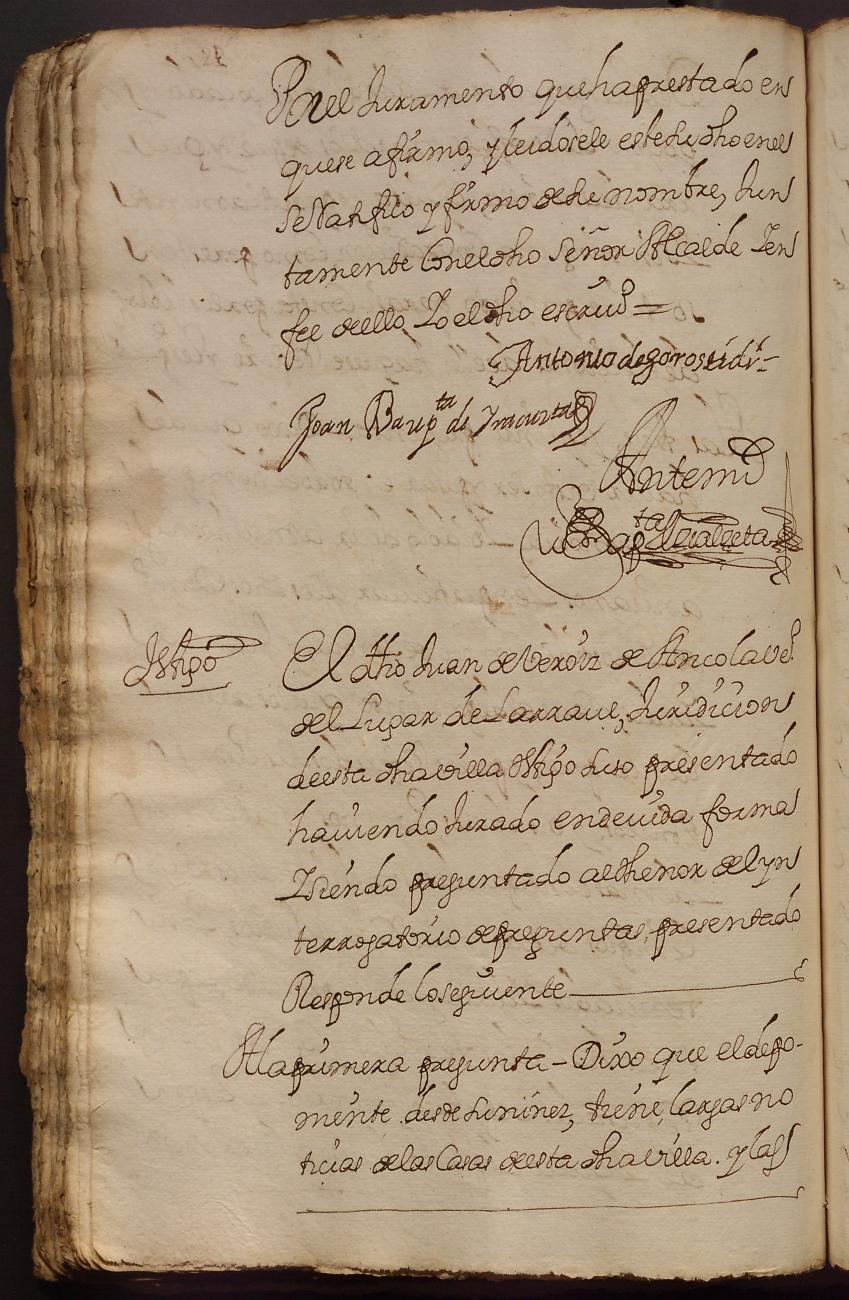 Por el Juramento que ha prestado en
que se afirmo, y leidosele este su dho en el
se Ratifico y firmo de su nombre, Jun
tamente Con el dho Señor Alcalde Zen
fee de ello Yo el dho escriuº =
Antonio de gorostidi
Joan Baupta de Yracurta
Ante mi
Bapta
tgo
El dho Juan de Veroiz de Ancola veº
del Lugar de Larraul, Juridicion
de esta dha villa tgo suso presentado
hauiendo Jurado en deuida forma
Y siendo preguntado al thenor del yn
terrogatorio de preguntas, presentado
Responde lo seguiente
A la primera pregunta - Dixo que el depo-
niente desde su niñez, tiene largas no
ticias de las Casas de esta dha villa. y las